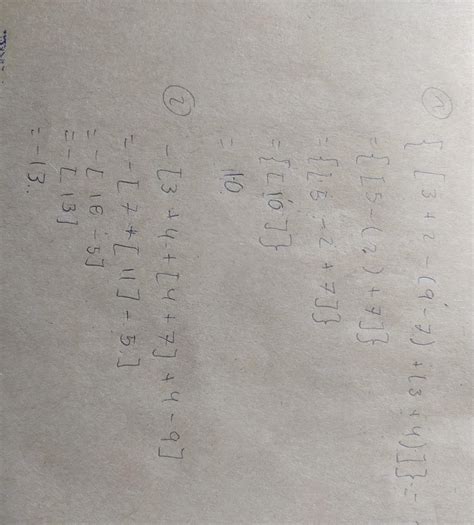 1) { [3+2-(9-7)+(3+4)]} =
= {[5-(2)+7]}
= {[5-2+7]}
= {[10]}
= 10
2) -[3+4+[4+7]+4-9]
= -[7+[11]-5]
= -[18-5]
= -[13]
= -13